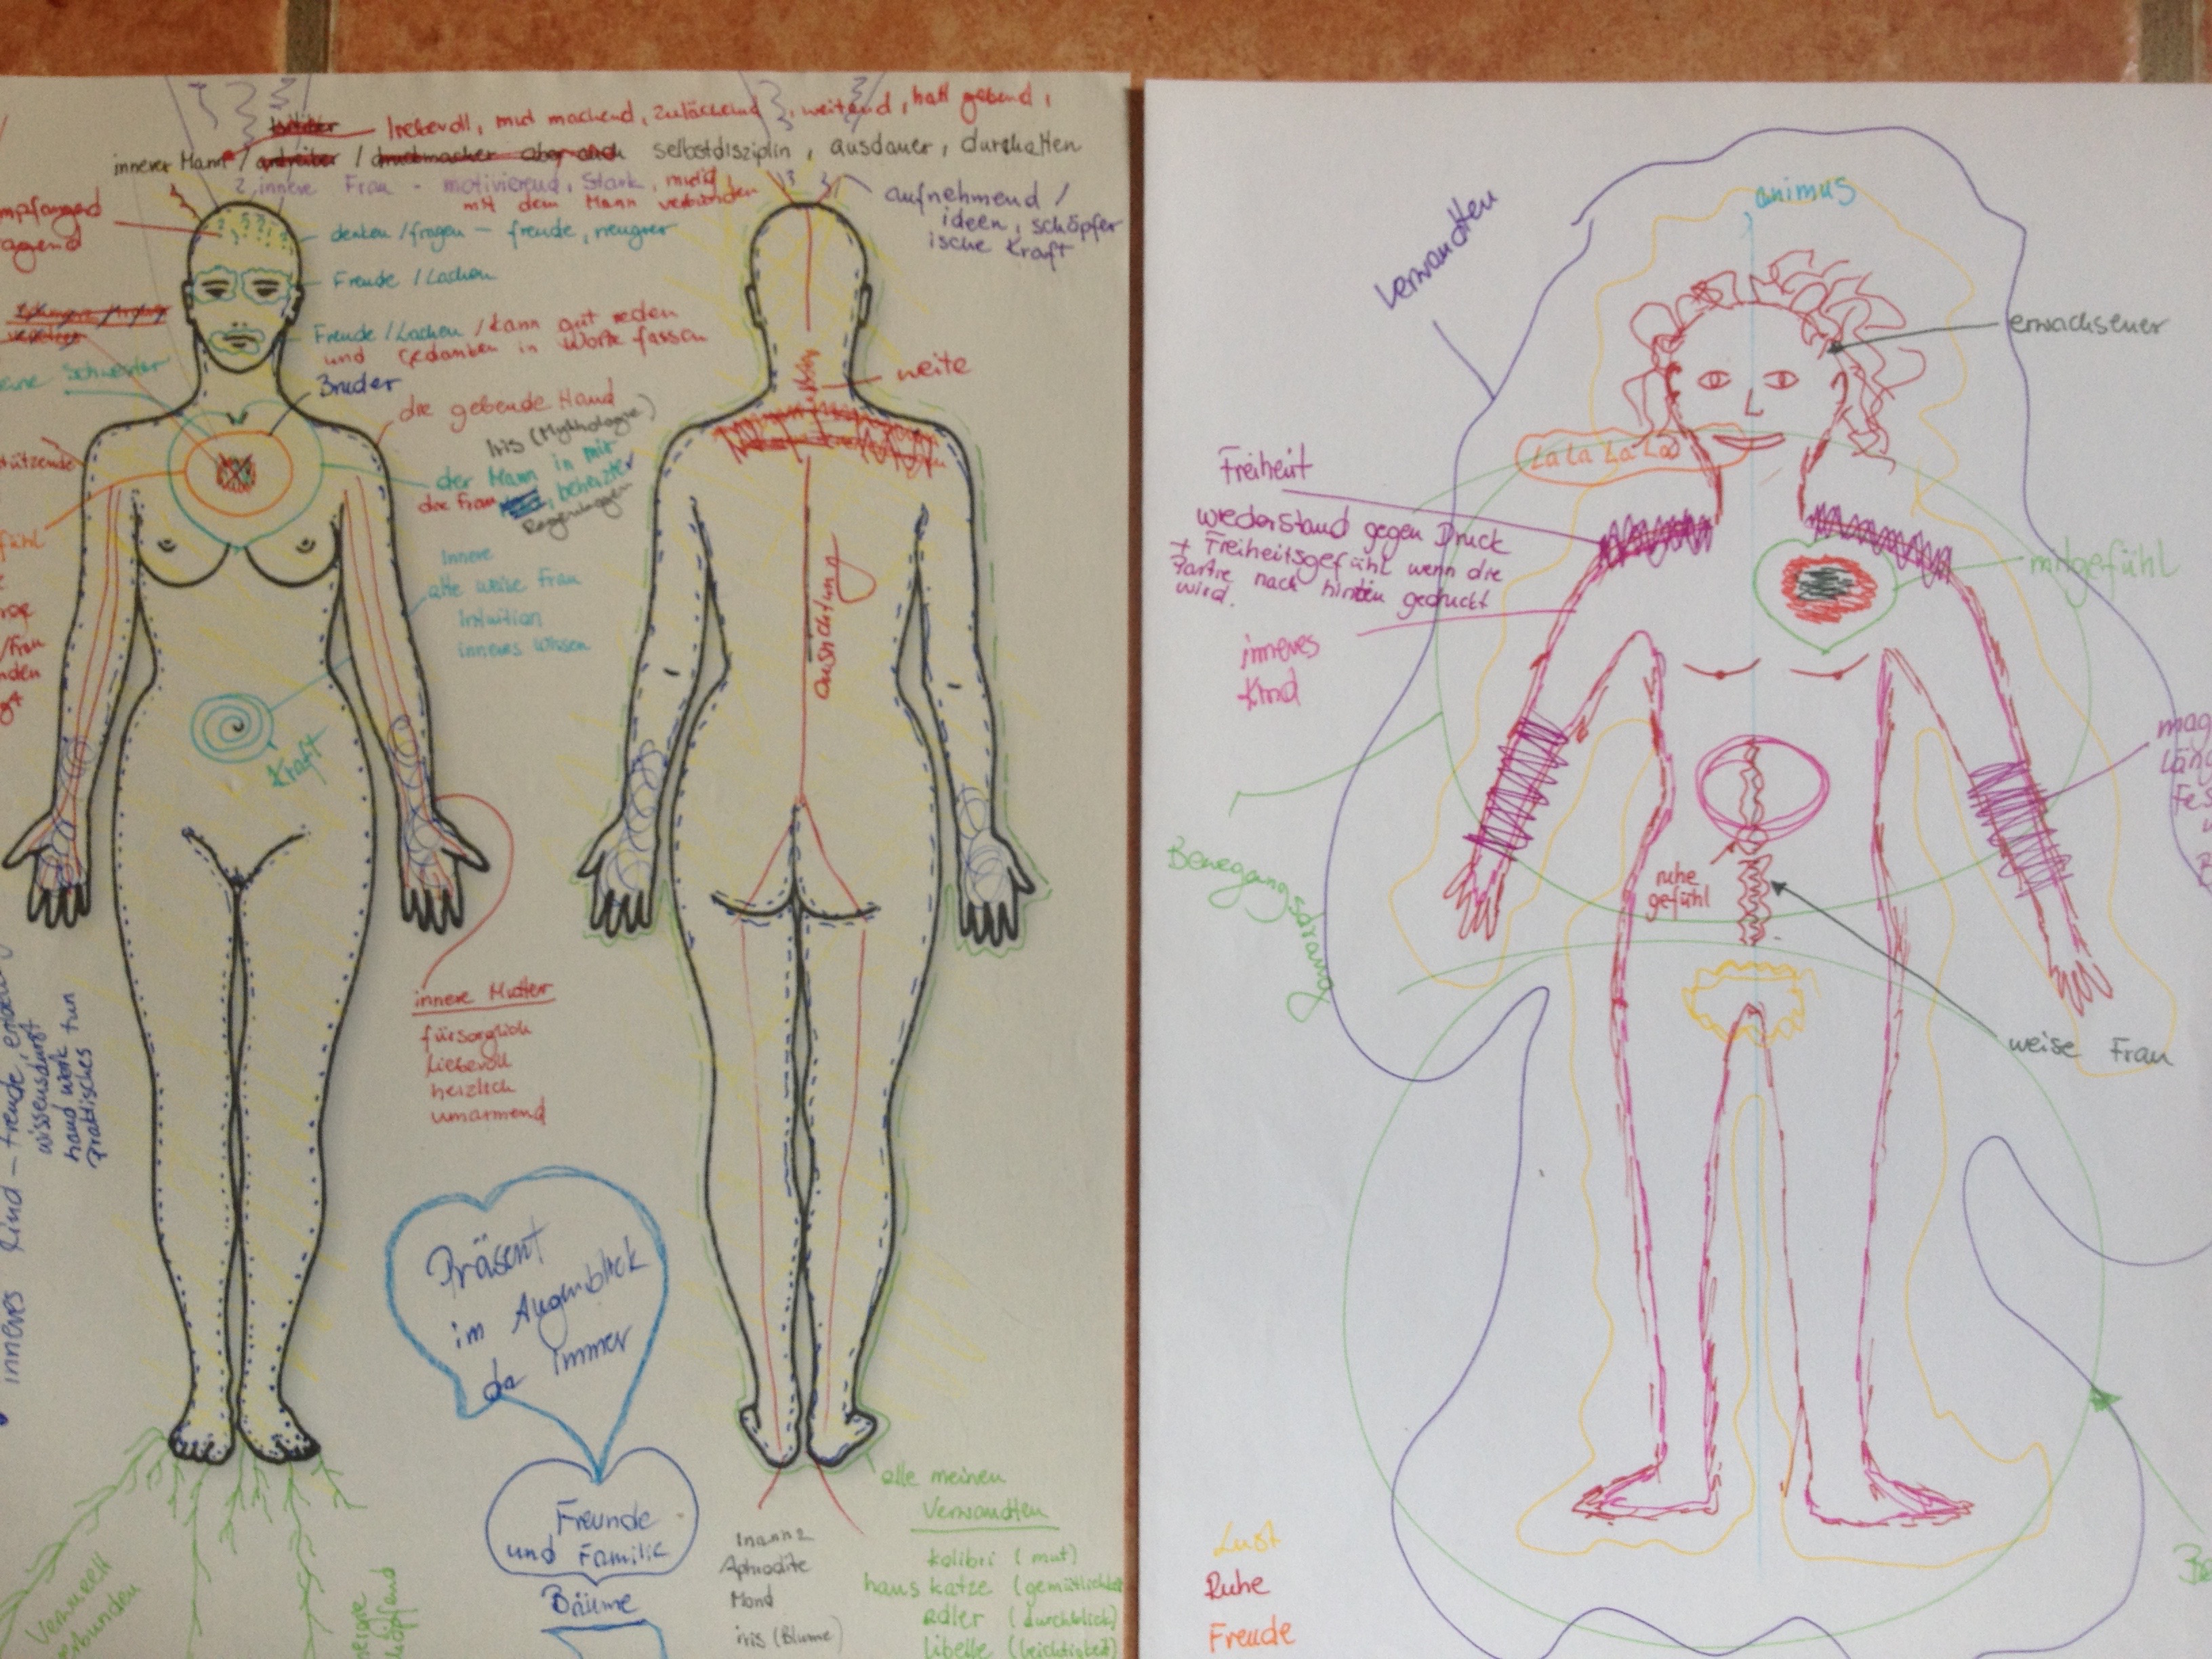 liebevoll, mut machend, zulächelnd, weitend, halt gebend,
innerer Mann / antreiber / druckmacher aber auch selbstdisziplin, ausdauer, durchalten
2, innere Frau - motivierend, stark, mutig,
mit dem Mann verbinden
aufnehmend /
ideen, schöpfer
ische Kraft
mpfangend
agend
denken / fragen - freude, neugier
Freude / Lachen
Freude / Lachen / kann gut reden
und Gedanken in Worte fassen
Schwester
Bruder
weite
die gebende Hand
Iris (Mythologie)
der Mann in mir
die Frau beherzter
Regenbogen
tützende
fühl
/Frau
nden
gt
Innere
alte weise Frau
Intuition
inneres Wissen
Kraft
ausrichtung
innere Mutter
fürsorglich
liebevoll
herzlich
umarmend
inneres Kind - freude,
wissensdurst
hand werk tun
praktisches
Präsent
im Augenblick
da immer
Freunde
und Familie
Bäume
Inanna
Aphrodite
Mond
iris (Blume)
alle meinen
Verwandten
kolibri (mut)
haus katze (gemütlichkeit
adler (durchblick)
libelle (leichtigkeit)
verwurzelt
rbunden
nergie
höpfend
Verwandten
animus
erwachsener
La La La La
Freiheit
wiederstand gegen Druck
+ Freiheitsgefühl wenn die
Partie nach hinten gedruckt
wird.
mitgefühl
inneres
Kind
mag
Läng
Fes
Bewegungsdrang
ruhe
gefühl
weise Frau
Lust
Ruhe
Freude
Be